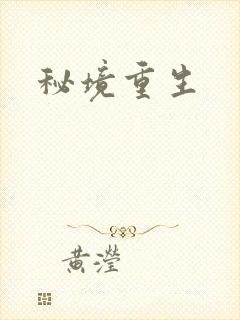 秘境重生
黄滢